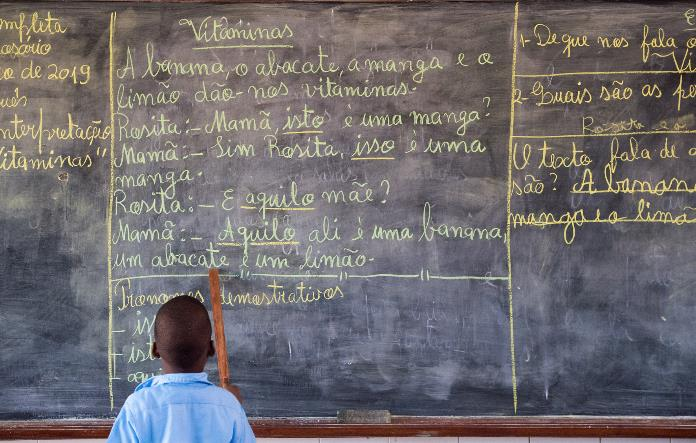 mpleta
o de 2019
uês
nterpretação
itaminas"
Vitaminas
A banana, o abacate, a manga e o
limão dão-nos vitaminas.
Rosita:- Mamã, isto é uma manga?
Mamã:- Sim Rosita, isso é uma
manga.
Rosita:- E aquilo mãe?
Mamã:- Aquilo ali é uma banana,
um abacate e um limão.
Pronomes demostrativos
- is
- ist
- aqu
1- De que nos fala o
2- Quais são as pe
O texto fala de a
são? A banan
manga e o limã